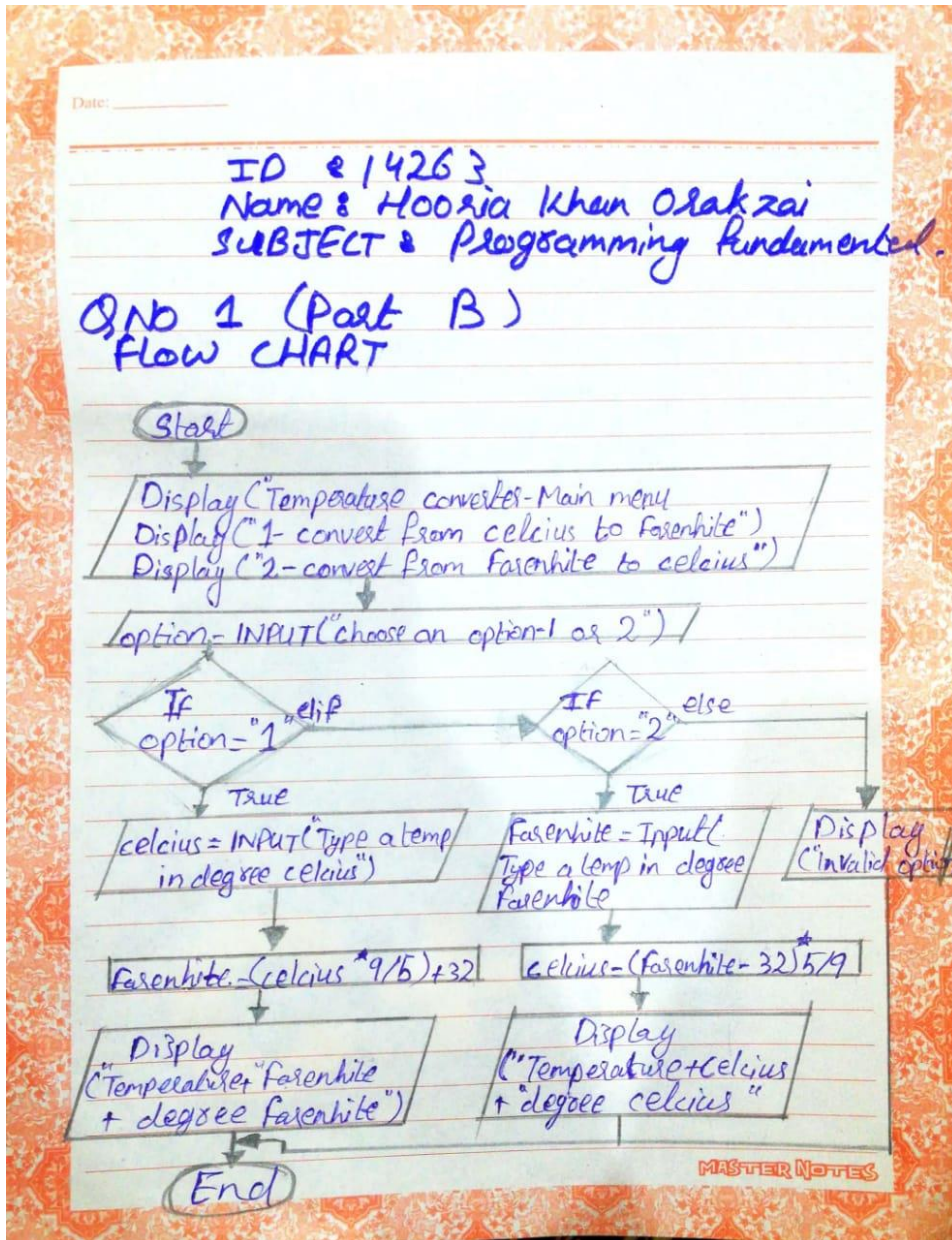 Date:
ID : 14263
Name : Hooria Khan Orakzai
SUBJECT : Programming fundamental.
QNO 1 (Part B)
FLOW CHART
Start
Display ("Temperature converter-Main menu
Display ("1- convert from celcius to Farenhite")
Display ("2-convert from Farenhite to celcius")
option = INPUT("choose an option-1 or 2")
If
option="1"
elif
If
option="2"
else
True
celcius = INPUT("Type a temp
in degree celcius")
True
Farenhite = Input(
Type a temp in degree
Farenhite
Display
("invalid optio
Farenhite = (celcius *9/5)+32
celcius = (farenhite-32)*5/9
Display
("Temperature+"Farenhite
+ degree farenhite")
Display
("Temperature+celcius
+ "degree celcius "
End
MASTER NOTES